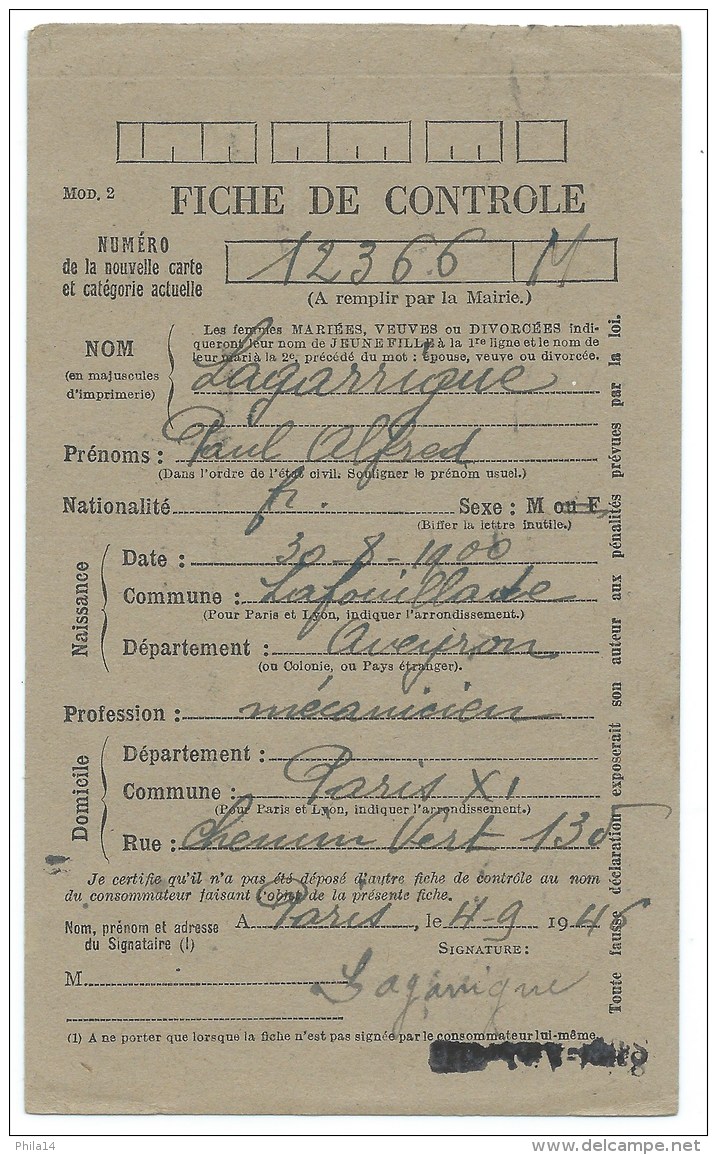 MOD. 2 FICHE DE CONTROLE
NUMÉRO
de la nouvelle carte
et catégorie actuelle
12366 M
(A remplir par la Mairie.)
NOM
(en majuscules
d'imprimerie)
Les femmes MARIÉES, VEUVES ou DIVORCÉES indi-
queront leur nom de JEUNE FILLE à la 1re ligne et le nom de
leur mari à la 2e, précédé du mot : épouse, veuve ou divorcée.
Lagarrigue
Prénoms : Paul Alfred
(Dans l'ordre de l'état civil. Souligner le prénom usuel.)
Nationalité fr. Sexe : M ou F
(Biffer la lettre inutile.)
Naissance
Date : 30-8-1900
Commune : Lafouillade
(Pour Paris et Lyon, indiquer l'arrondissement.)
Département : Aveyron
(ou Colonie, ou Pays étranger).
Profession : mécanicien
Domicile
Département :
Commune : Paris XI
(Pour Paris et Lyon, indiquer l'arrondissement.)
Rue : Chemin Vert 130
Je certifie qu'il n'a pas été déposé d'autre fiche de contrôle au nom
du consommateur faisant l'objet de la présente fiche.
Nom, prénom et adresse
du Signataire (1)
A Paris, le 4-9 1946
SIGNATURE :
M
Lagarrigue
(1) A ne porter que lorsque la fiche n'est pas signée par le consommateur lui-même.
Toute fausse déclaration exposerait son auteur aux pénalités prévues par la loi.
Phila14
delcampe.net